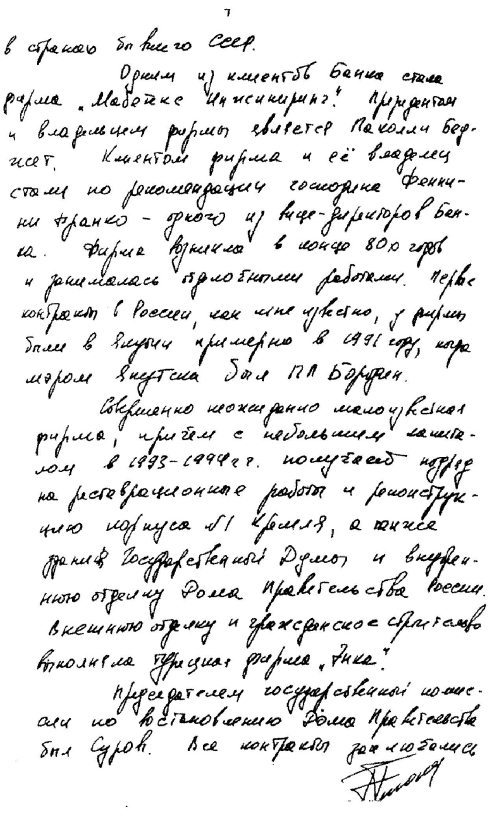 7
в странаю бывшего СССР.
Одним из клиентов Банка стала
фирма „Мабетекс Инжиниринг". Президентом
и владельцем фирмы является Паколли Бед-
жет. Клиентом фирма и её владелец
стали по рекомендации господина Фенни-
ни Франко – одного из вице-директоров Бан-
ка. Фирма возникла в конце 80х годов
и занималась отделочными работами. Первые
контракты в России, как мне известно, у фирмы
были в Якутии примерно в 1991 году, когда
мэром Якутска был ПП Бородин.
Совершенно неожиданно малоизвестная
фирма, причем с небольшим капита-
лом в 1993-1994 г.г. получает подряд
на реставрационные работы и реконструк-
цию корпуса №1 Кремля, а также
здания Государственной Думы и внутрен-
нюю отделку Дома Правительства России.
Внешнюю отделку и гражданское строительство
выполняла турецкая фирма „Энка".
Председателем государственной комис-
сии по востановлению Дома Правительства
был Суров. Все контракты заключались